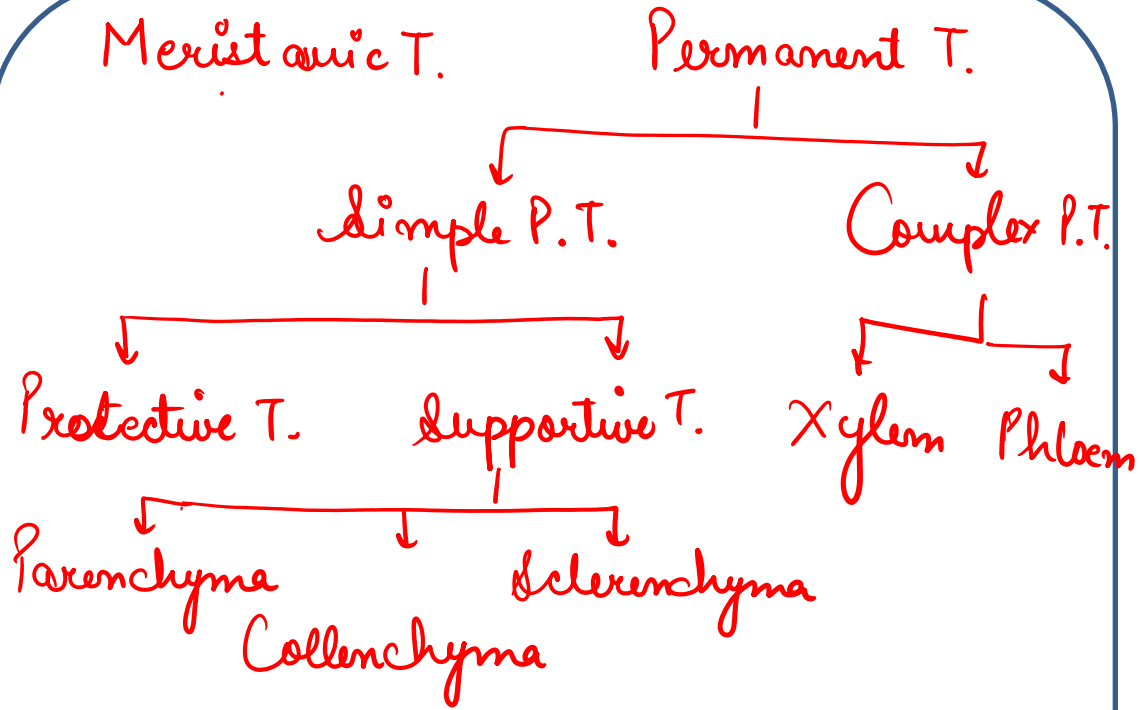 Meristamic T. Permanent T.
Simple P.T. Complex P.T.
Protective T. Supportive T. Xylem Phloem
Parenchyma Sclerenchyma
Collenchyma